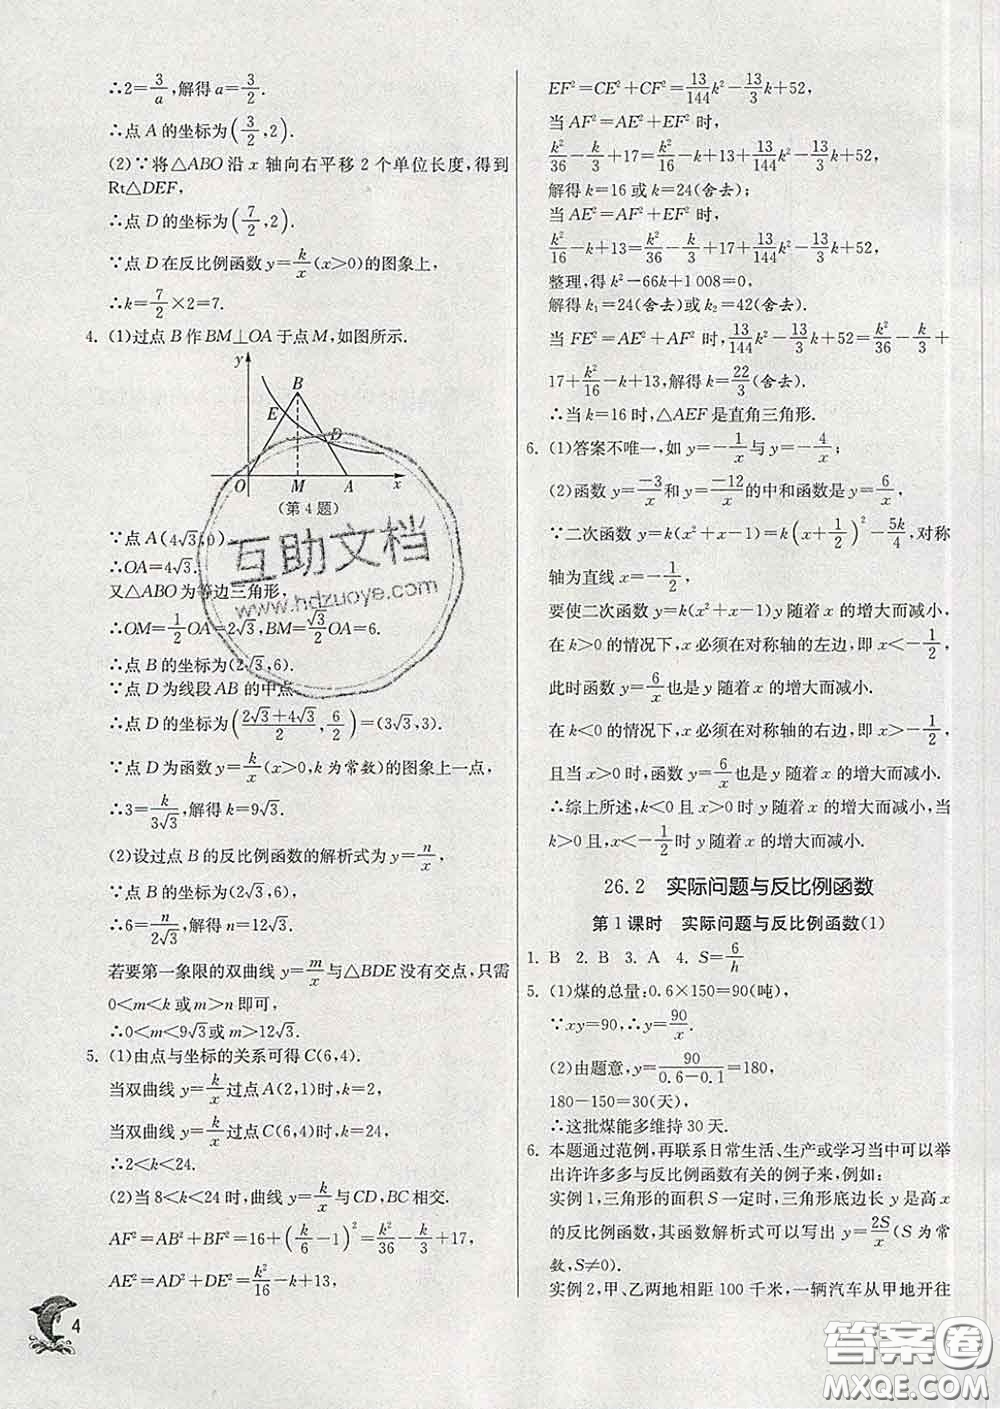 ∴2=3/a,解得a=3/2.
∴点A的坐标为(3/2,2).
(2)∵将△ABO沿x轴向右平移2个单位长度,得到
Rt△DEF,
∴点D的坐标为(7/2,2).
∵点D在反比例函数y=k/x(x>0)的图象上,
∴k=7/2×2=7.
4. (1)过点B作BM⊥OA于点M,如图所示.
y
B
E
D
O M A x
(第4题)
∵点A(4√3,0),
∴OA=4√3.
又△ABO为等边三角形,
∴OM=1/2OA=2√3,BM=√3/2OA=6.
∴点B的坐标为(2√3,6).
∵点D为线段AB的中点,
∴点D的坐标为((2√3+4√3)/2,6/2)=(3√3,3).
∵点D为函数y=k/x(x>0,k为常数)的图象上一点,
∴3=k/3√3,解得k=9√3.
(2)设过点B的反比例函数的解析式为y=n/x,
∵点B的坐标为(2√3,6),
∴6=n/2√3,解得n=12√3.
若要第一象限的双曲线y=m/x与△BDE没有交点,只需
0<m<k或m>n即可,
∴0<m<9√3或m>12√3.
5. (1)由点与坐标的关系可得C(6,4).
当双曲线y=k/x过点A(2,1)时,k=2,
当双曲线y=k/x过点C(6,4)时,k=24,
∴2<k<24.
(2)当8<k<24时,曲线y=k/x与CD,BC相交.
AF²=AB²+BF²=16+(k/6-1)²=k²/36-k/3+17,
AE²=AD²+DE²=k²/16-k+13,
EF²=CE²+CF²=13/144k²-13/3k+52,
当AF²=AE²+EF²时,
k²/36-k/3+17=k²/16-k+13+13/144k²-13/3k+52,
解得k=16或k=24(舍去);
当AE²=AF²+EF²时,
k²/16-k+13=k²/36-k/3+17+13/144k²-13/3k+52,
整理,得k²-66k+1 008=0.
解得k₁=24(舍去)或k₂=42(舍去).
当FE²=AE²+AF²时,13/144k²-13/3k+52=k²/36-k/3+
17+k²/16-k+13,解得k=22/3(舍去).
∴当k=16时,△AEF是直角三角形.
6. (1)答案不唯一,如y=-1/x与y=-4/x;
(2)函数y=-3/x和y=-12/x的中和函数是y=6/x,
∵二次函数y=k(x²+x-1)=k(x+1/2)²-5k/4,对称
轴为直线x=-1/2,
要使二次函数y=k(x²+x-1)y随着x的增大而减小,
在k>0的情况下,x必须在对称轴的左边,即x<-1/2,
此时函数y=6/x也是y随着x的增大而减小.
在k<0的情况下,x必须在对称轴的右边,即x>-1/2,
且当x>0时,函数y=6/x也是y随着x的增大而减小.
∴综上所述,k<0且x>0时y随着x的增大而减小,当
k>0且,x<-1/2时y随着x的增大而减小.
26.2 实际问题与反比例函数
第1课时 实际问题与反比例函数(1)
1. B 2. B 3. A 4. S=6/h
5. (1)煤的总量:0.6×150=90(吨),
∵xy=90,∴y=90/x.
(2)由题意,90/(0.6-0.1)=180,
180-150=30(天),
∴这批煤能多维持30天.
6. 本题通过范例,再联系日常生活、生产或学习当中可以举
出许许多多与反比例函数有关的例子来,例如:
实例1,三角形的面积S一定时,三角形底边长y是高x
的反比例函数,其函数解析式可以写出y=2S/x(S为常
数,S≠0).
实例2,甲、乙两地相距100千米,一辆汽车从甲地开往
4
互助文档
www.hdzuoye.com
答案圈
MXQE.COM